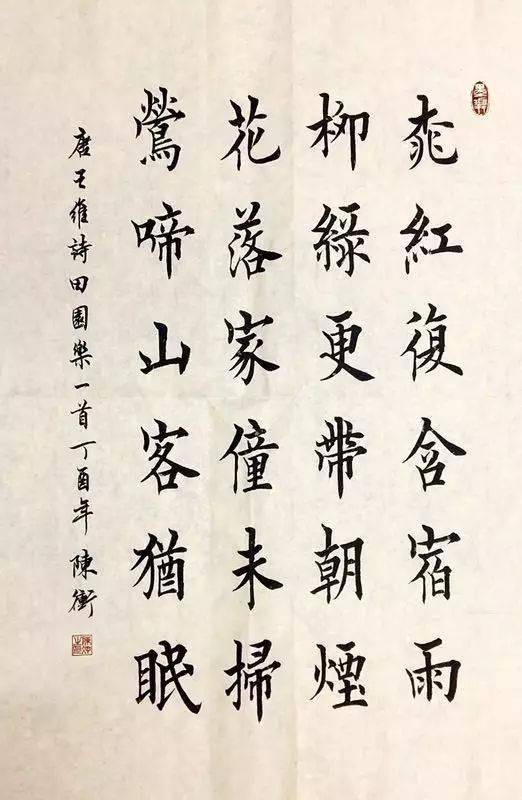 桃紅復含宿雨
柳綠更帶朝煙
花落家僮未掃
鶯啼山客猶眠
唐王維詩田園樂一首丁酉年陳衡